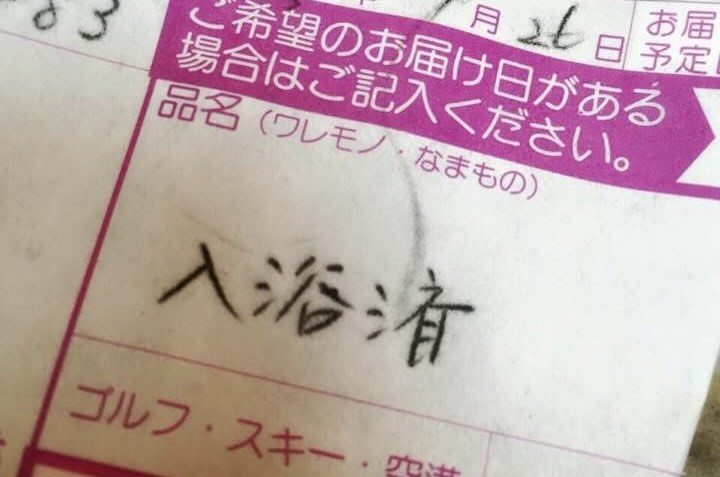 83
月 26 日
お届
予定
ご希望のお届け日がある
場合はご記入ください。
品名(ワレモノ・なまもの)
入浴済
ゴルフ・スキー・空港